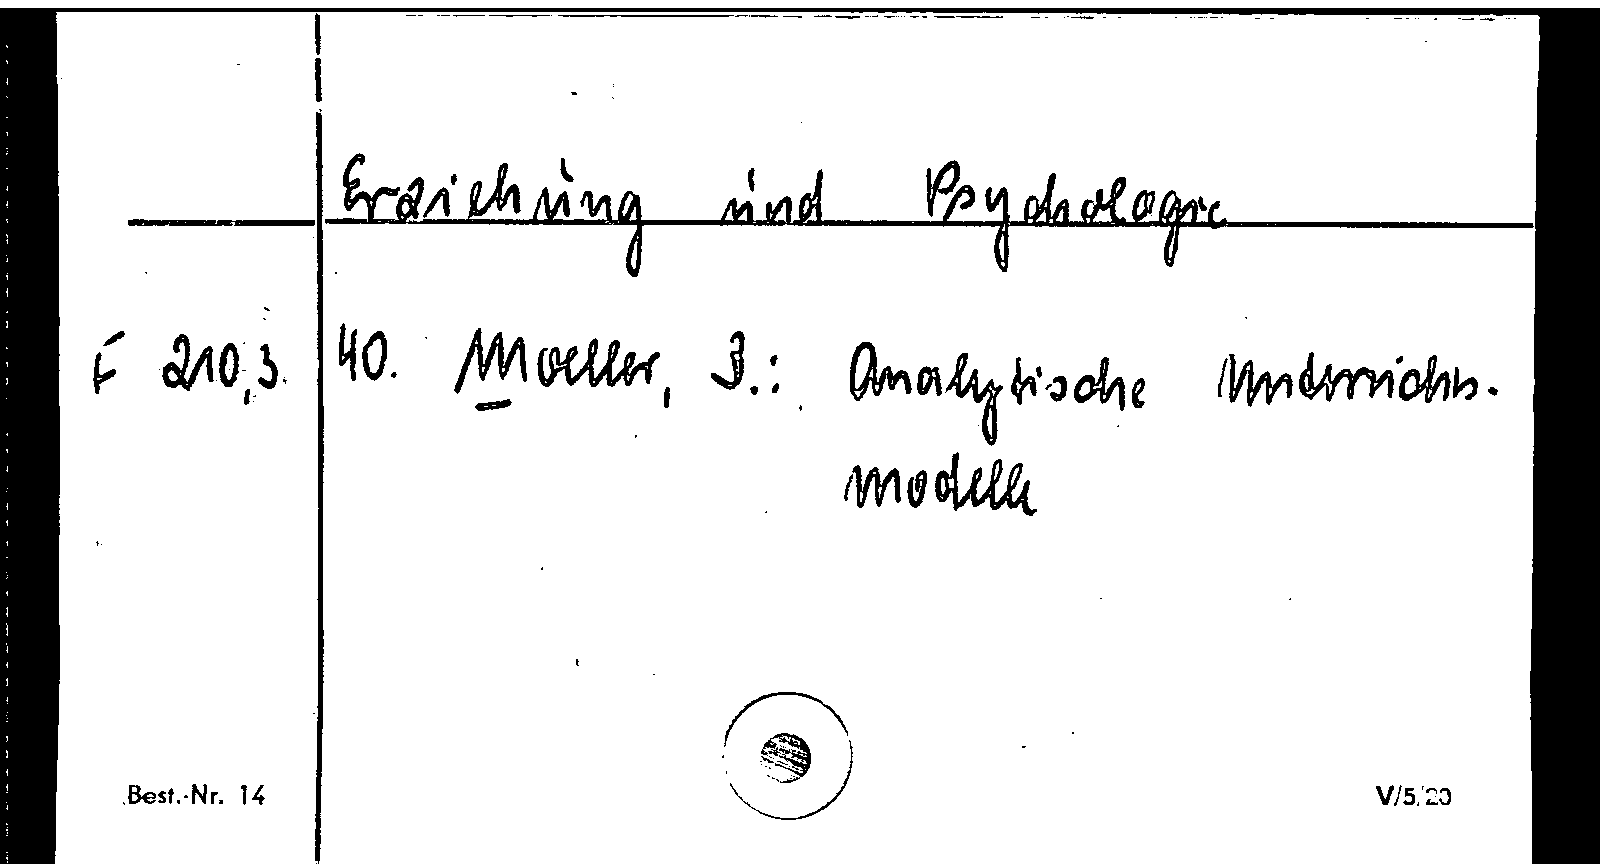 Erziehung und Psychologie
F 210,3 40. Moeller, B.: Analytische Unterrichts-
modelle
Best.-Nr. 14 V/5/20